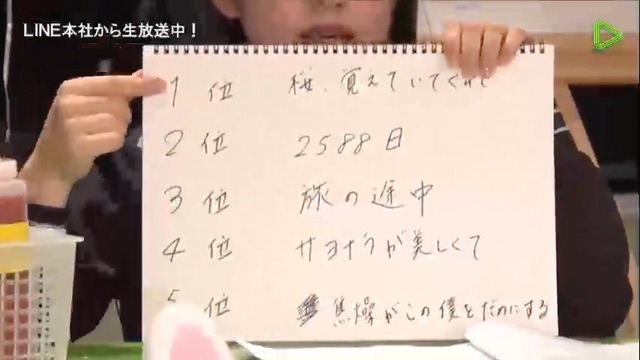 LINE本社から生放送中！
1位 桜、覚えていてくれ
2位 2588日
3位 旅の途中
4位 サヨナラが美しくて
5位 焦燥がこの僕をだめにする